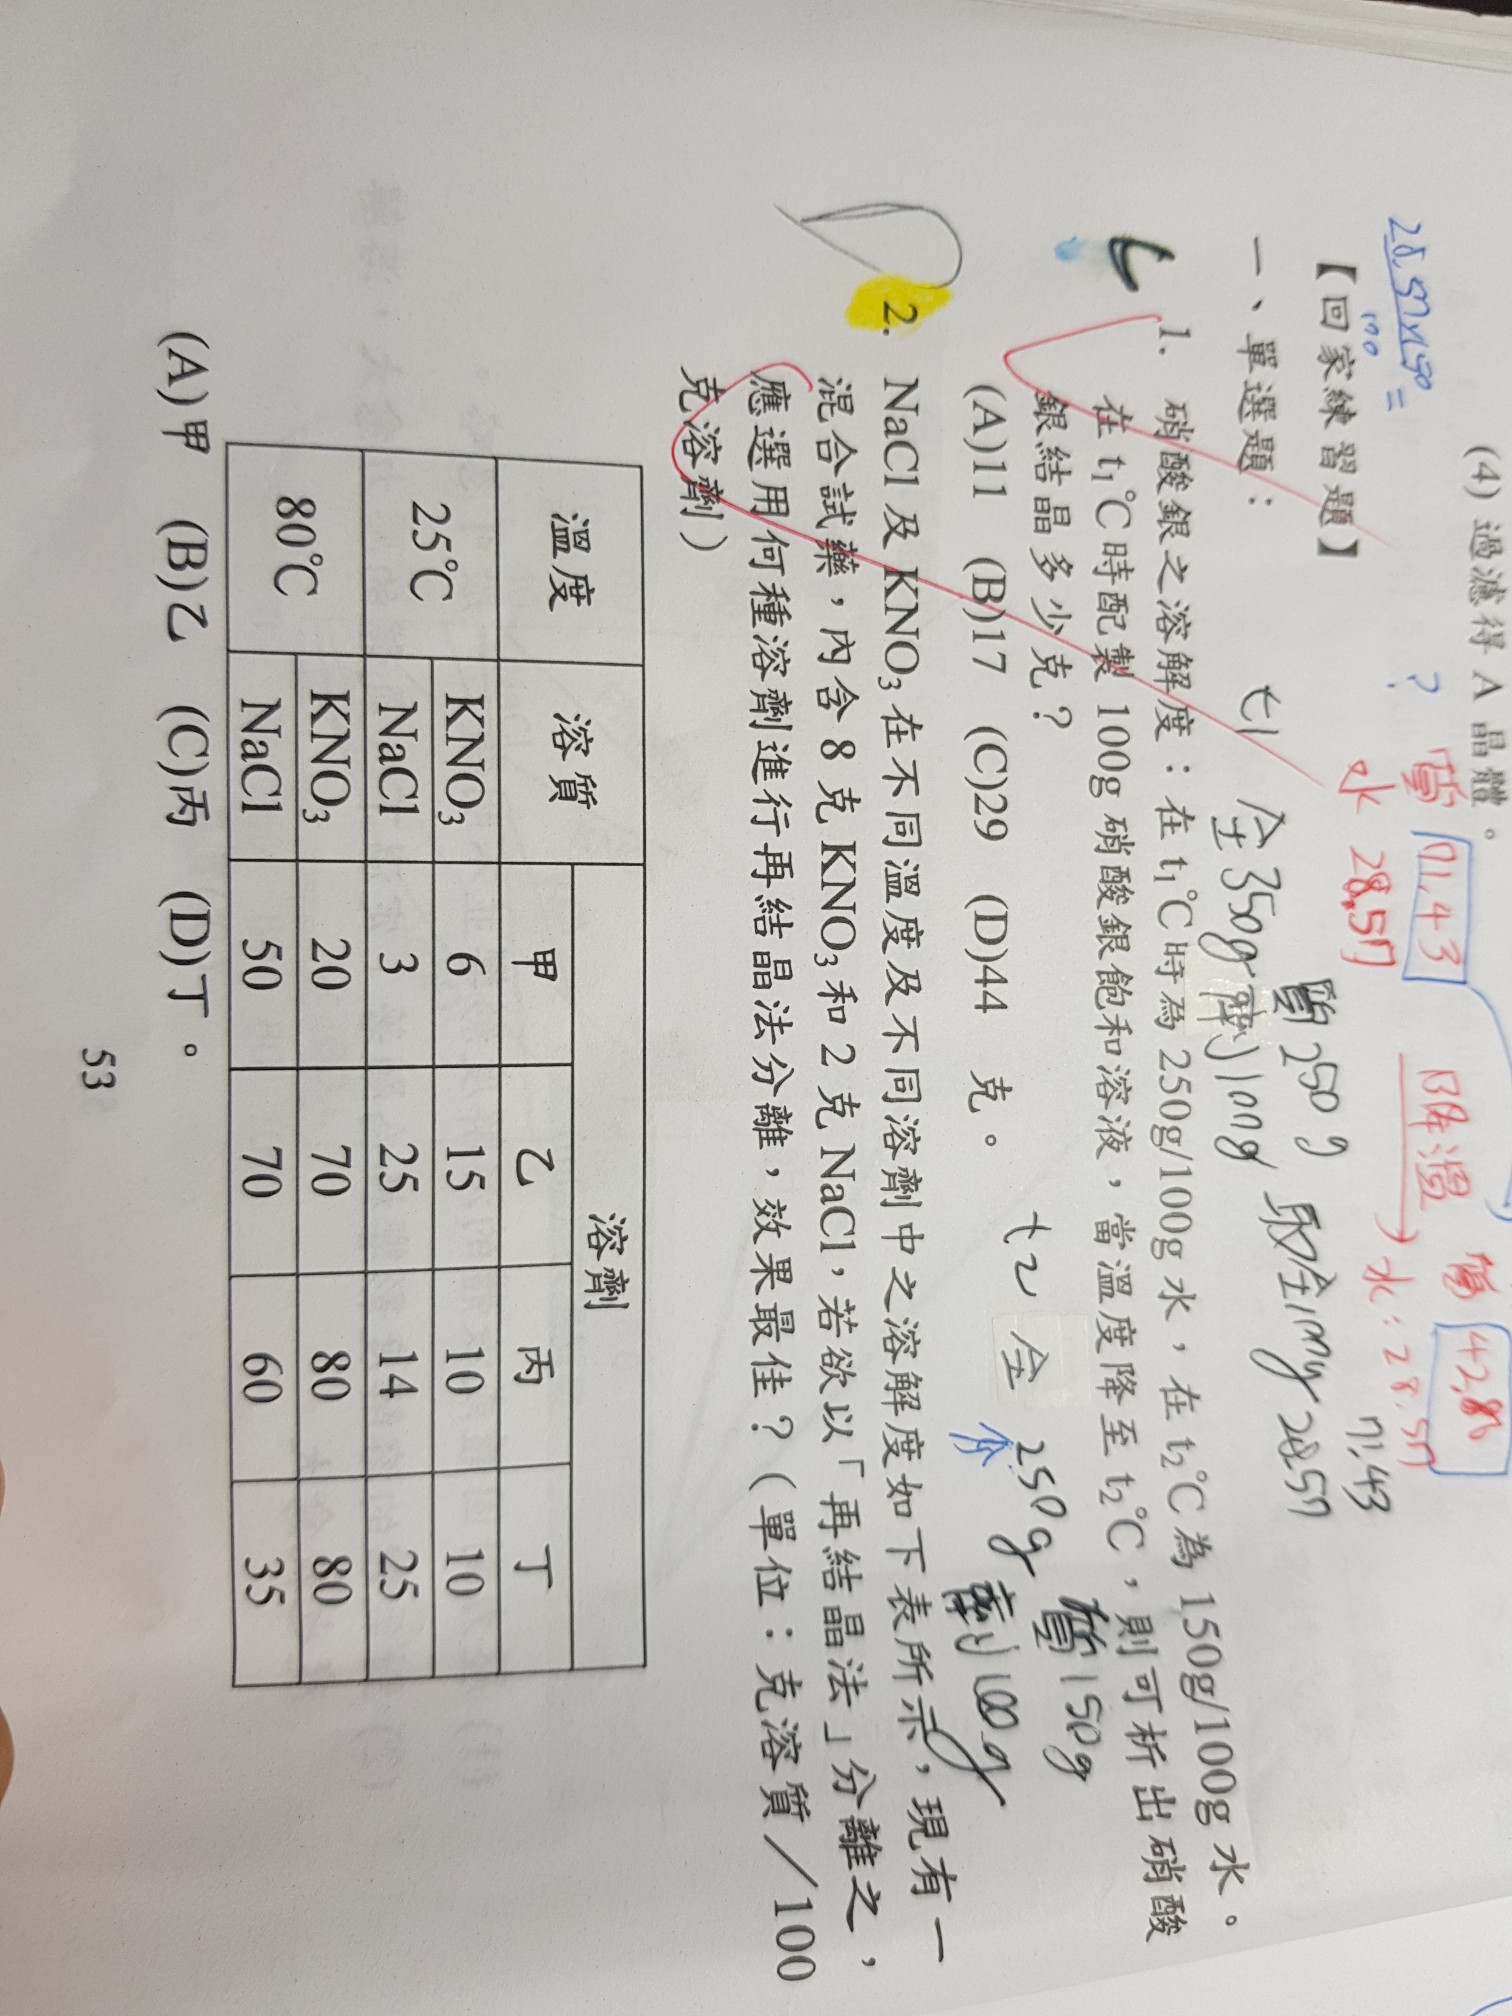 (4) 過濾得 A 晶體。
28.57×150 =
100
?
質 71.43
水 28.57
降溫
質 42.86
水:28.57
【回家練習題】
一、單選題:
t1
全350g 質250g
劑100g
取全100g
71.43
28.57
1. 硝酸銀之溶解度:在 t₁℃時為 250g/100g 水,在 t₂℃為 150g/100g 水。
在 t₁℃時配製 100g 硝酸銀飽和溶液,當溫度降至 t₂℃,則可析出硝酸
銀結晶多少克?
t2 全 250g 質150g
劑100g
(A)11 (B)17 (C)29 (D)44 克。
2. NaCl 及 KNO₃ 在不同溫度及不同溶劑中之溶解度如下表所示,現有一
混合試藥,內含 8 克 KNO₃ 和 2 克 NaCl,若欲以「再結晶法」分離之,
應選用何種溶劑進行再結晶法分離,效果最佳?(單位:克溶質/100
克溶劑)
溫度 溶質 溶劑
甲 乙 丙 丁
25℃ KNO₃ 6 15 10 10
NaCl 3 25 14 25
80℃ KNO₃ 20 70 80 80
NaCl 50 70 60 35
(A)甲 (B)乙 (C)丙 (D)丁。
53